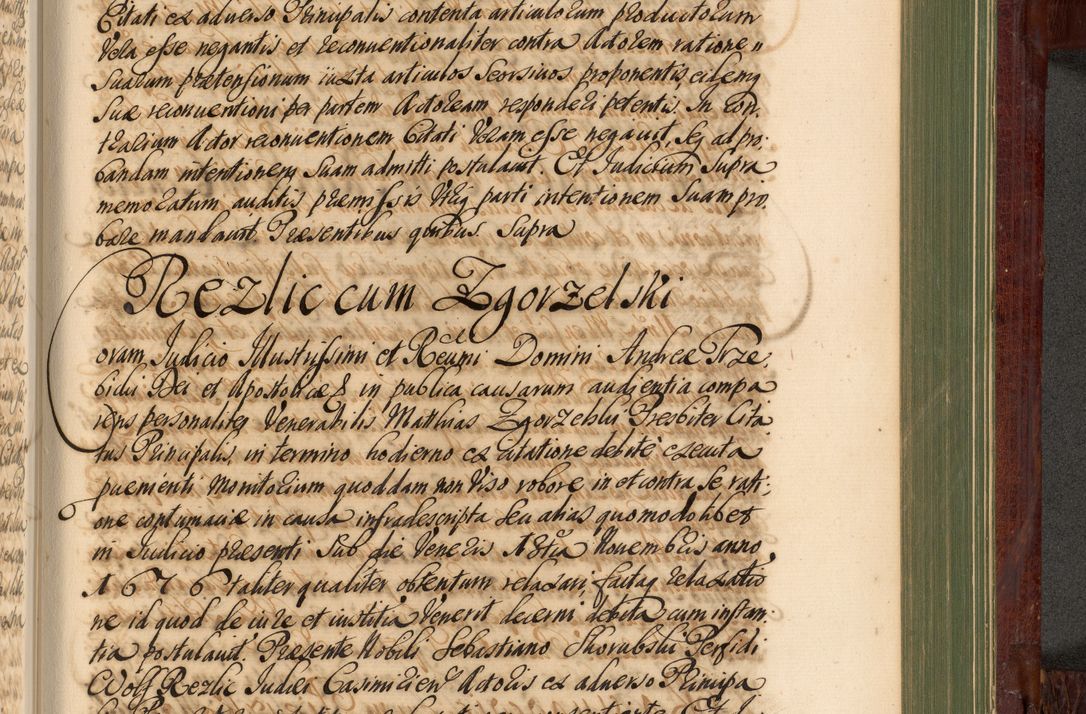 Citati ex adverso Principalis contenta articulorum productorum
Vera esse negantis et reconventionaliter contra Actorem ratione
suarum praetensionum iuxta articulos seorsivos proponentis, eidemq
suae reconventioni per partem Actoream responderi petentis, In con,
trarium Actor reconventionem Citati Veram esse negavit, seq ad pro,
bandam intentionem suam admitti postulavit. Et Iudicium supra
memoratum auditis praemissis Utriq parti intentionem suam pro,
bare mandavit Praesentibus quibus supra
Rezlic cum Zgorzelski
oram Iudicio Illustrissimi et Reverendissimi Domini Andreae Trze,
bicki Dei et Apostolicae & in publica causarum audientia compa
rens personaliter Venerabilis Matthias Zgorzelski Presbiter Cita
tus Principalis, in termino hodierno ex citatione debite executa
pvenienti Monitorium quoddam non Viso robore in et contra se rati,
one contumaciae in causa infradescripta seu alias quomodolibet
in Iudicio praesenti sub die Veneris Novembris anno
1676 taliter qualiter obtentum relaxari, factaq relaxatio
ne id quod de iure et iustitia Venerit decerni debita cum instan,
tia postulavit. Praesente Nobili Sebastiano Skorubski Perfidi
Wolf Rezlic Iudaei Casimirien Actoris ex adverso Principa